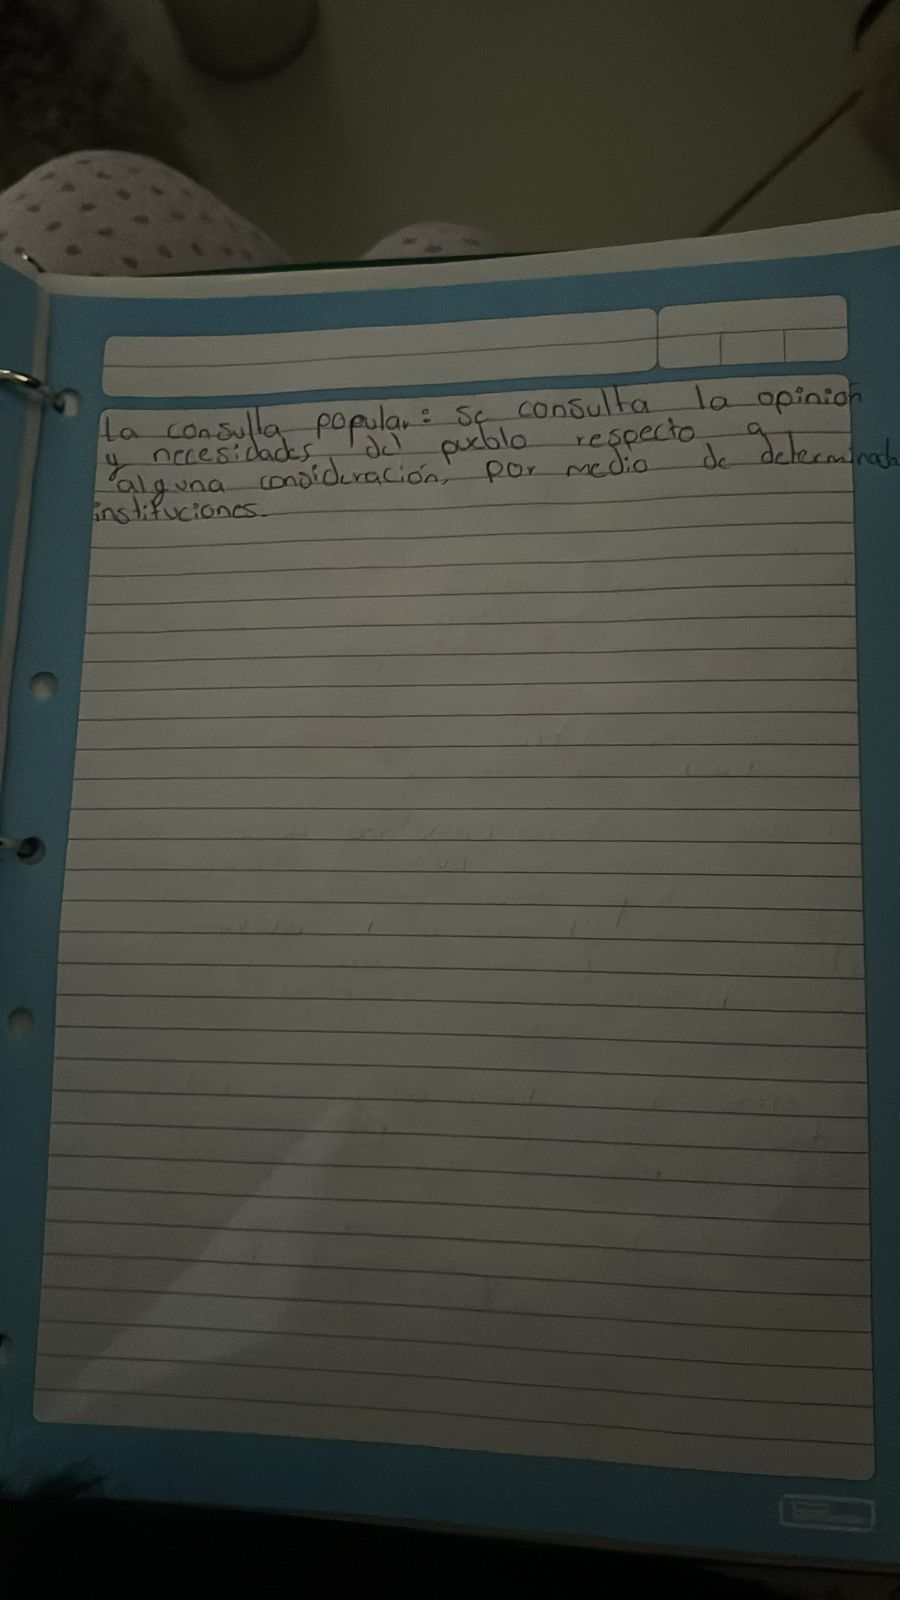 La consulta popular: se consulta la opinion
y necesidades del pueblo respecto a
alguna consideración, por medio de determinada
instituciones.